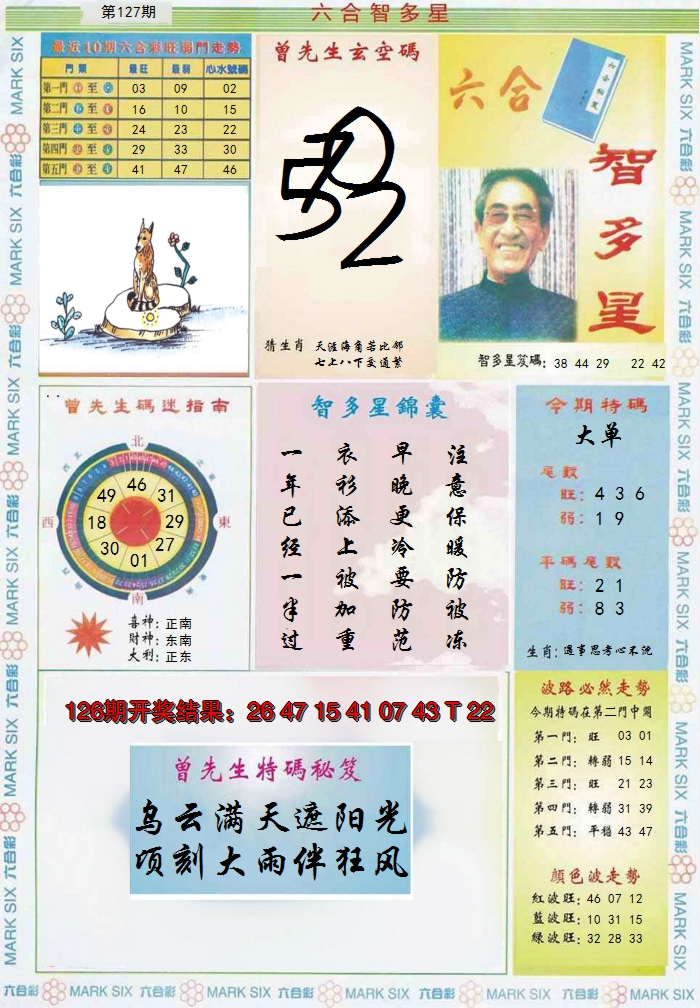 第127期
六合智多星
最近10期六合彩旺弱門走勢
門類 最旺 最弱 心水號碼
第一門 至 03 09 02
第二門 至 16 10 15
第三門 至 24 23 22
第四門 至 29 33 30
第五門 至 41 47 46
曾先生玄空碼
猜生肖 天涯海角若比邻
七上八下交通繁
六合
智多星
智多星笈碼: 38 44 29 22 42
曾先生碼迷指南
北
西
東
南
46
31
29
27
01
30
18
49
喜神: 正南
財神: 东南
大利: 正东
智多星錦囊
注意保暖防被冻
早晚更冷要防范
衣衫添上被加重
一年已经一半过
今期特碼
大单
尾數
旺: 4 3 6
弱: 1 9
平碼尾數
旺: 2 1
弱: 8 3
生肖: 遇事思考心不慌
126期开奖结果: 26 47 15 41 07 43 T 22
曾先生特碼秘笈
乌云满天遮阳光
顷刻大雨伴狂风
波路必然走勢
今期特碼在第二門中開
第一門: 旺 03 01
第二門: 轉弱 15 14
第三門: 旺 21 23
第四門: 轉弱 31 39
第五門: 平穩 43 47
顏色波走勢
紅波旺: 46 07 12
藍波旺: 10 31 15
綠波旺: 32 28 33
MARK SIX 六合彩